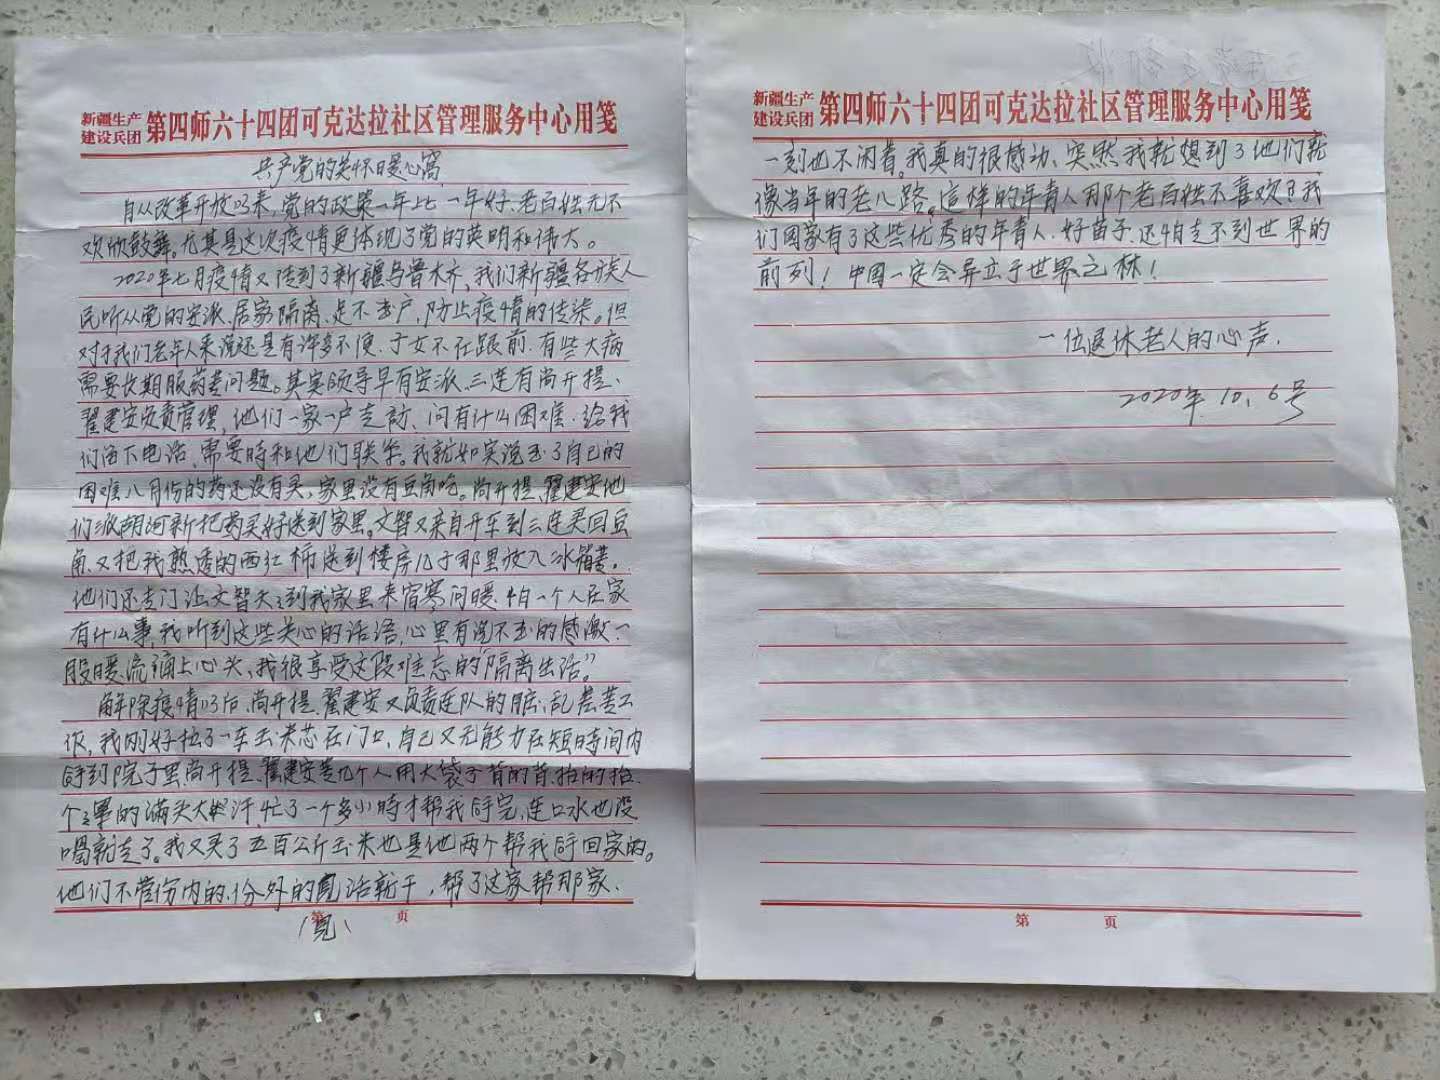 新疆生产
建设兵团 第四师六十四团可克达拉社区管理服务中心用笺
共产党的关怀暖心窝
自从改革开放以来,党的政策一年比一年好,老百姓无不
欢欣鼓舞。尤其是这次疫情更体现了党的英明和伟大。
2020年七月疫情又传到了新疆乌鲁木齐,我们新疆各族人
民听从党的安派,居家隔离、足不出户,防止疫情的传染。但
对于我们老年人来说还是有许多不便,子女不在跟前,有些大病
需要长期服药等问题。其实领导早有安派,三连有尚开提、
翟建安负责管理,他们一家一户走访、问有什么困难,给我
们留下电话,需要时和他们联系。我就如实说出了自己的
困难八月份的药还没有买,家里没有豆角吃。尚开提、翟建安他
们派胡河新把药买好送到家里。文智又亲自开车到三连买回豆
角又把我熟透的西红柿送到楼房儿子那里放入冰箱等。
他们还专门让文智天天到我家里来宿寒问暖,怕一个人在家
有什么事,我听到这些关心的话语,心里有说不出的感激,一
股暖流涌上心头,我很享受这段难忘的“隔离生活”
解除疫情以后,尚开提、翟建安又负责连队的脏、乱差等工
作,我刚好拉了一车玉米芯在门口,自己又无能力在短時间内
弄到院子里尚开提、翟建安等几个人用大袋子背的背,抬的抬,
个个累的满头大汗忙了一个多小時才帮我弄完,连口水也没
喝就走了。我又买了五百公斤玉米也是他两个帮我弄回家的。
他们不管份内的、份外的见活就干,帮了这家帮那家、
(见)
第 页
新疆生产
建设兵团 第四师六十四团可克达拉社区管理服务中心用笺
一刻也不闲着。我真的很感动、突然我就想到了他们就
像当年的老八路。這样的年青人那个老百姓不喜欢?我
们国家有了这些优秀的年青人、好苗子,还怕走不到世界的
前列!中国一定会屹立于世界之林!
一位退休老人的心声.
2020年10.6号
第 页